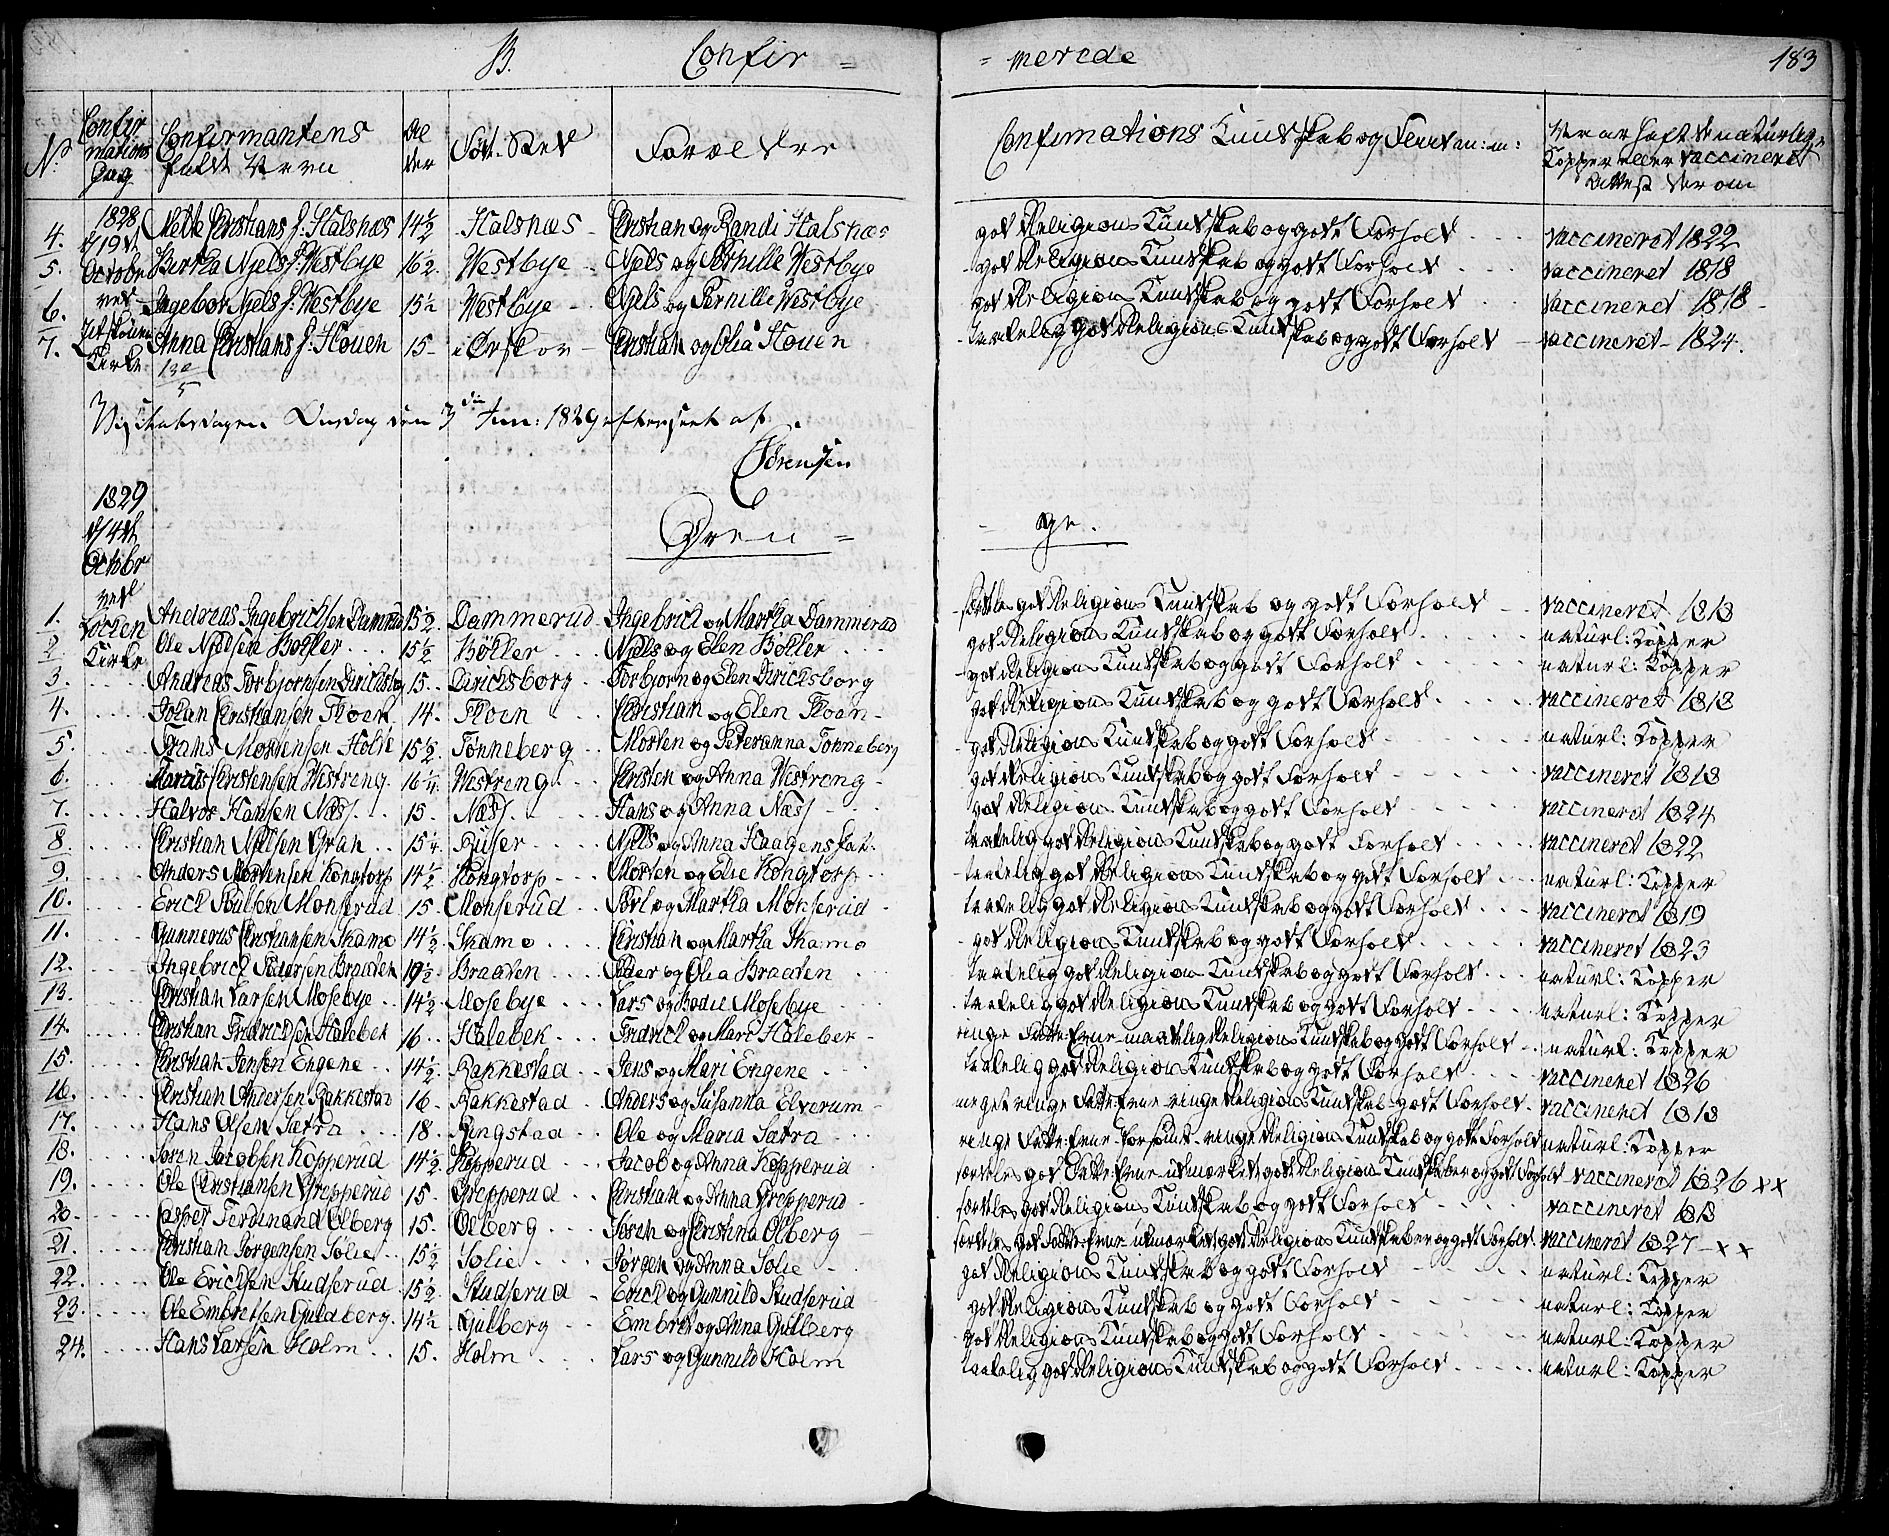 B. Confir = = merede 183
No Confirmations Dag Confirmantens fulde Navn Alder Fød. Sted Forældre Confirmations Kundskab og Flid m: m: Naar haft de naturlige Kopper eller vaccineret Attest derom
1828 d/19de October ved Kirke
4. Christians D: Halsnæs 14½ Halsnæs Christian og Randi Halsnæs god Religions Kundskab og godt Forhold vaccineret 1822
5. Bertha Njels D: Westbye 16½ Westbye Njels og Pernille Westbye god Religions Kundskab og godt Forhold vaccineret 1818
6. Ingebor Njels D: Westbye 15½ Westbye Njels og Pernille Westbye god Religions Kundskab og godt Forhold vaccineret 1818
7. Anna Christians D: Houen 15 i Ørskov Christian og Olia Houen taalelig god Religions Kundskab og godt Forhold vaccineret 1824.
Visitatsdagen Onsdag den 3die Jun: 1829 efterseet af
Sørensen
1829 d/4de Octobr ved Kirke
Dren = = ge.
1. Andreas Ingebrichsen Dammerud 15½ Dammerud Ingebrich og Martha Dammerud særdeles god Religions Kundskab og godt Forhold vaccineret 1818
2. Ole Njelsen Bøhler 15½ Bøhler Njels og Elen Bøhler god Religions Kundskab og godt Forhold naturl: Kopper
3. Andreas Torbjornsen Dirichsborg 15 Dirichsborg Torbjorn og Elen Dirichsborg god Religions Kundskab og godt Forhold naturl: Kopper
4. Johan Christiansen Floen 14 Floen Christian og Elen Floen god Religions Kundskab og godt Forhold vaccineret 1818
5. Hans Mortensen Holte 15½ Tønneberg Morten og Pederanna Tønneberg god Religions Kundskab og godt Forhold naturl: Kopper
6. Christensen Westreng 16¼ Westreng Christen og Anna Westreng god Religions Kundskab og godt Forhold vaccineret 1818
7. Halvor Hansen Næss 15 Næss Hans og Anna Næss god Religions Kundskab og godt Forhold vaccineret 1824
8. Christian Njelsen Gran 15¼ Ruser Njels og Anna taalelig god Religions Kundskab og godt Forhold vaccineret 1822
9. Anders Mortensen Kongtorp 14½ Kongtorp Morten og Elie Kongtorp taalelig god Religions Kundskab og godt Forhold naturl: Kopper
10. Erich Poulsen Monserud 15 Monserud og Martha Monserud taalelig god Religions Kundskab og godt Forhold vaccineret 1819
11. Gunnerus Christiansen Skamo 14½ Skamo Christian og Martha Skamo god Religions Kundskab og godt Forhold vaccineret 1823
12. Ingebrich Pedersen Braaten Braaten Peder og Olia Braaten taalelig god Religions Kundskab og godt Forhold naturl: Kopper
13. Christian Larsen Mosebye 14½ Mosebye Lars og Bodil Mosebye taalelig god Religions Kundskab og godt Forhold naturl: Kopper
14. Christian Fridrichsen Halebek 16 Halebek Fridrich og Mari Halebek ringe Fatte-Evne maadelig Religions Kundskab og godt Forhold naturl: Kopper
15. Christian Jensen Engene 14½ Rakkestad Jens og Mari Engene taalelig god Religions Kundskab og godt Forhold vaccineret 1826
16. Christian Andersen Rakkestad 16 Rakkestad Anders og Susanna Elverum meget ringe Fatte-Evne ringe Religions Kundskab godt Forhold vaccineret 1818
17. Hans Olsen Sætra 18 Ringstad Ole og Maria Sætra ringe Fatte-Evne forsømt ringe Religions Kundskab og godt Forhold naturl: Kopper
18. Soren Jacobsen Kopperud 14½ Kopperud Jacob og Anna Kopperud særdeles god Fatte-Evne udmærket god Religions Kundskaber og godt Forhold vaccineret 1826 xx
19. Ole Christiansen Grepperud 15 Grepperud Christian og Anna Grepperud særdeles god Religions Kundskab og godt Forhold vaccineret 1818
20. Casper Ferdinand Olberg 15 Olberg Soren og Christina Olberg særdeles god Fatte-Evne udmærket god Religions Kundskaber og godt Forhold vaccineret 1827 xx
21. Christian Jørgensen Sølie 15½ Solie Jørgen og Anna Solie god Religions Kundskab og godt Forhold naturl: Kopper
22. Ole Erichsen Studserud 15½ Studserud Erich og Gunnild Studserud god Religions Kundskab og godt Forhold naturl: Kopper
23. Ole Embretsen Guldberg 14½ Gulberg Embret og Anna Gulberg god Religions Kundskab og godt Forhold naturl: Kopper
24. Hans Larsen Holm 15 Holm Lars og Gunnild Holm taalelig god Religions Kundskab og godt Forhold naturl: Kopper